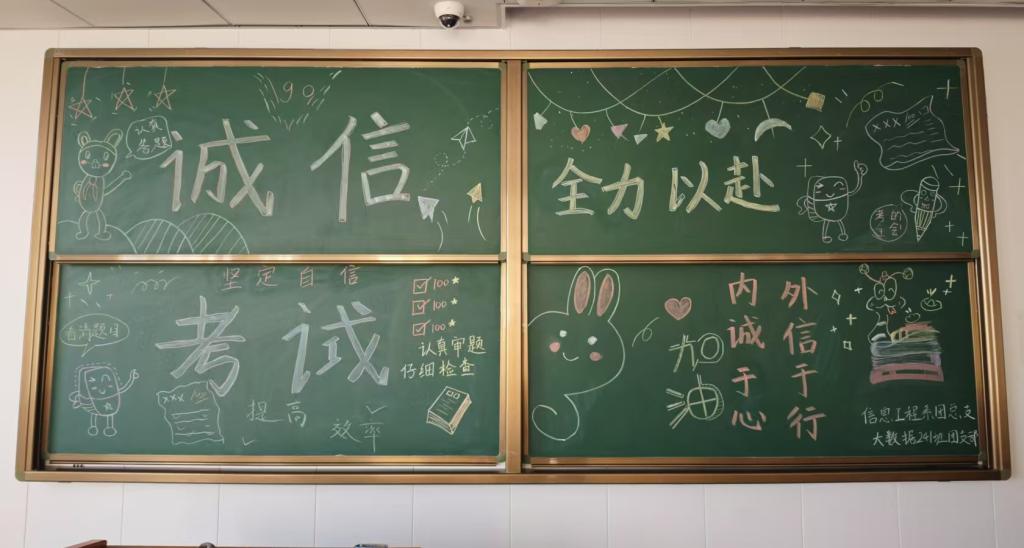 99
认真
答题
诚信
全力以赴
xxx
坚定自信
看清题目
考试
100
100
100
认真审题
仔细检查
xxx
提高
效率
加
外信于行
内诚于心
信息工程系团总支
大数据241班团支部